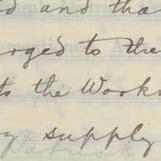 and tha
rged to the
to the Work
y supply